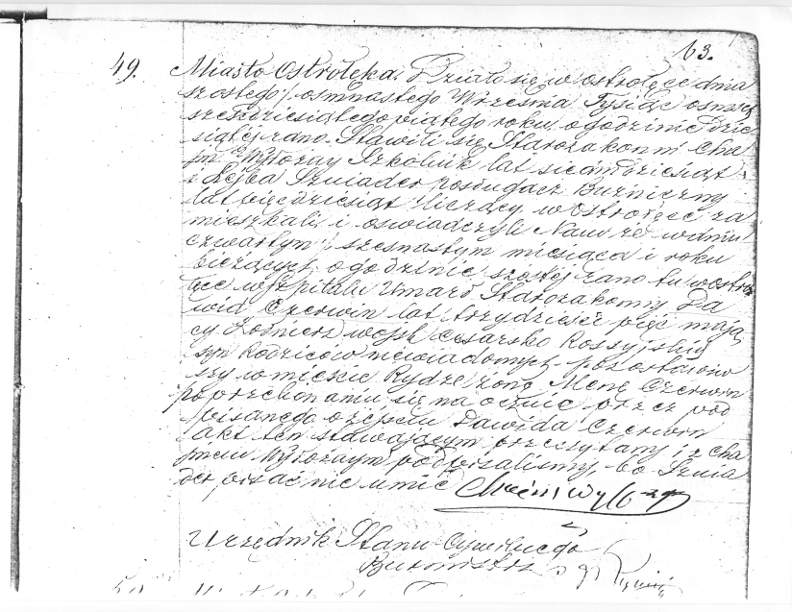 63.
49. Miasto Ostrołęka. Działo się w Ostrołęce dnia
szóstego / osmnastego Września Tysiąc osmset
sześćdziesiątego piątego roku o godzinie dzie
siątej rano. Stawili się Starozakonni Cha
im Wyłozny Szkolnik lat siedmdziesiąt
i Lejba Szniader posługacz Bużniczny
lat pięćdziesiąt liczący w Ostrołęce za
mieszkali, i oswiadczyli Nam że w dniu
czwartym / szesnastym miesiąca i roku
bieżących, o godzinie szóstej rano tu w Ostro
łęce w Szpitalu Umarł Starozakonny Da
wid Czerwin lat trzydzieści pięć mają
cy Żołnierz wojsk Cesarsko Rossyjskich
syn Rodziców niewiadomych - pozostawiw
szy w mieście Rydze żonę Menę Czerwin
po przekonaniu się na ocznie przez pod
pisanego o zejściu Dawida Czerwin
akt ten stawającym przeczytany i z Cha
imem Wyłoznym podpisaliśmy - bo Sznia
der pisać nie umie
Urzędnik Stanu Cywilnego
Burmistrz
50.